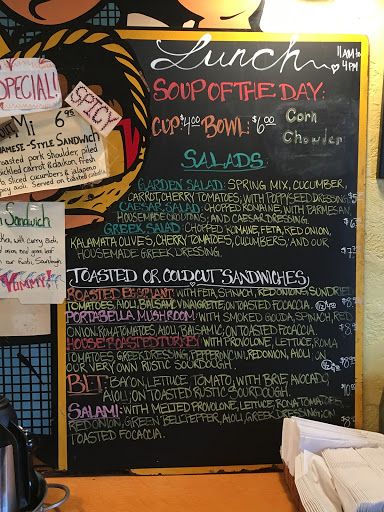 Lunch
11AM to
4PM
SOUP OF THE DAY:
CUP: $4.00 BOWL: $6.00
Corn
Chowder
SALADS
GARDEN SALAD: SPRING MIX, CUCUMBER,
CARROT, CHERRY TOMATOES, WITH POPPYSEED DRESSING
CAESAR SALAD: CHOPPED ROMAINE, WITH PARMESAN,
HOUSEMADE CROUTONS, AND CAESAR DRESSING.
GREEK SALAD: CHOPPED ROMAINE, FETA, RED ONION,
KALAMATA OLIVES, CHERRY TOMATOES, CUCUMBERS, AND OUR
HOUSEMADE GREEK DRESSING.
TOASTED OR COLDCUT SANDWICHES
ROASTED EGGPLANT: WITH FETA, SPINACH, RED ONION, SUNDRIED
TOMATOES, AIOLI, BALSAMIC VINAIGRETTE, ON TOASTED FOCACCIA.
PORTABELLA MUSHROOM: WITH SMOKED GOUDA, SPINACH, RED
ONION, ROMA TOMATOES, AIOLI, BALSAMIC, ON TOASTED FOCACCIA
HOUSE ROASTED TURKEY: WITH PROVOLONE, LETTUCE, ROMA
TOMATOES, GREEK DRESSING, PEPPERONCINI, RED ONION, AIOLI ON
OUR VERY OWN RUSTIC SOURDOUGH.
BLT: BACON, LETTUCE, TOMATO, WITH BRIE, AVOCADO,
AIOLI, ON TOASTED RUSTIC SOURDOUGH.
SALAMI: WITH MELTED PROVOLONE, LETTUCE, ROMA TOMATOES,
RED ONION, GREEN BELL PEPPER, AIOLI, GREEK DRESSING, ON
TOASTED FOCACCIA.
SPECIAL!
SPICY
Mi 6.95
NAMESE-STYLE SANDWICH
roasted pork shoulder, piled
pickled carrot & daikon, fresh
sliced cucumbers & jalapeno
aioli. Served on toasted
Sandwich
with curry
Yummy!